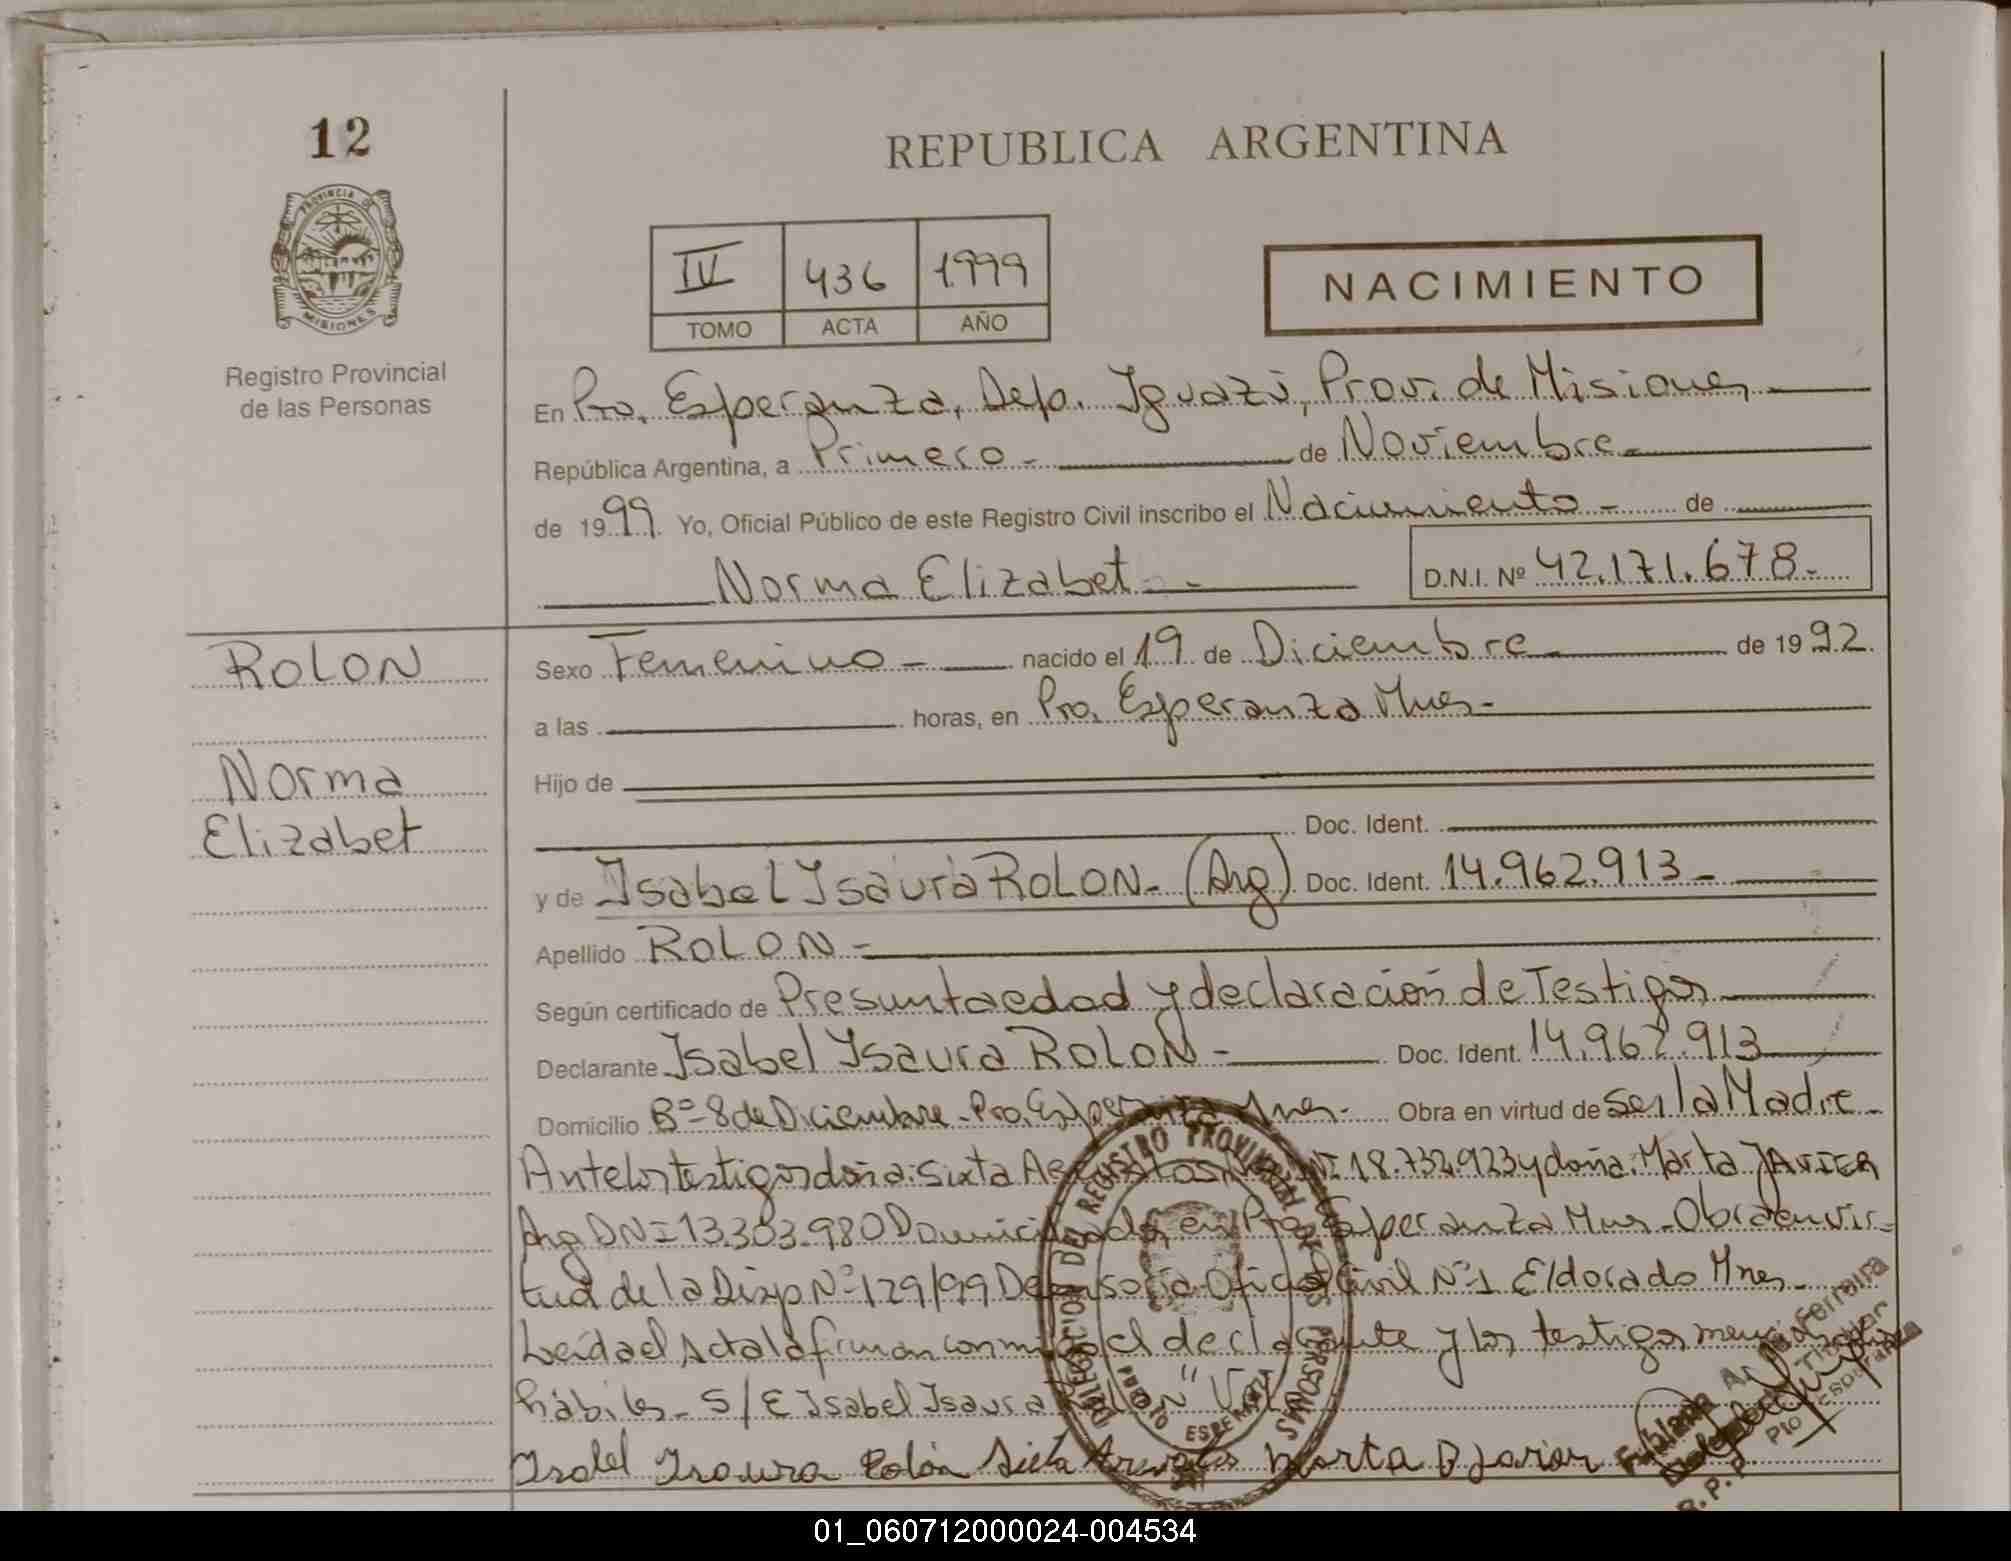 12
REPUBLICA ARGENTINA
PROVINCIA DE
MISIONES
Registro Provincial
de las Personas
IV 436 1999
TOMO ACTA AÑO
NACIMIENTO
En Pto. Esperanza, Dep. Iguazú, Prov. de Misiones
República Argentina, a Primero - de Noviembre
de 1999. Yo, Oficial Público de este Registro Civil inscribo el Nacimiento - de
Norma Elizabet - D.N.I. Nº 42.171.678-
ROLON
Norma
Elizabet
Sexo Femenino - nacido el 19 de Diciembre de 1992.
a las horas, en Pto. Esperanza Mnes-
Hijo de
Doc. Ident.
y de Isabel Isaura ROLON- (Arg) Doc. Ident. 14.962.913-
Apellido ROLON-
Según certificado de Presunta edad y declaración de Testigos
Declarante Isabel Isaura ROLON - Doc. Ident. 14.962.913
Domicilio Bº-8 de Diciembre-Pto. Esperanza Mnes- Obra en virtud de ser la Madre
Ante los testigos doña: Sixta 18.732.923 y doña: Marta JAVIER
Arg DNI 13.303.980 Domiciliada en Pto Esperanza Mnes-Obra en vir-
tud de la Disp Nº 129/99 Defensoria Oficial Civil Nº1 Eldorado Mnes-
Leida el Acta la firman conmigo el declarante y los testigos mencionados
hábiles- S/E Isabel Isaura
Isabel Isaura Rolón Sixta Marta Javier
DELEGACION DEL REGISTRO PROVINCIAL DE LAS PERSONAS
PTO ESPERANZA
Fabiana Ferreira
Titular
01_060712000024-004534